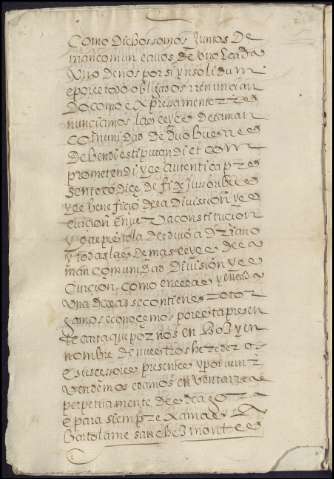 Como dichos somos juntos de
mancomun e a vos de uno e cada
uno de nos por si y nsolidum
e por el todo obligados rrenuncian
do como expresamente rre
nunciamos las leyes de la man
comunidad de duobus rreos
debendi estipulandi et com
prometendi y el autentica pre
sente to dice de fidejusoribus
y el beneficio de la division y ex
cucion en juta constitucion
y la epistola del divo adriano
y todas las demas leyes de la
mancomunidad division y ex
cucion como en ellas y en cada
una dellas se contiene otor
gamos e conocemos por esta presen
te carta que por nos en boz y en
nombre de nuestros herederos
e suscesores presentes y por venir
vendemos e damos en venta rreal
perpetuamente desde agora
e para siempre xamas a
bartolame sanchez montes